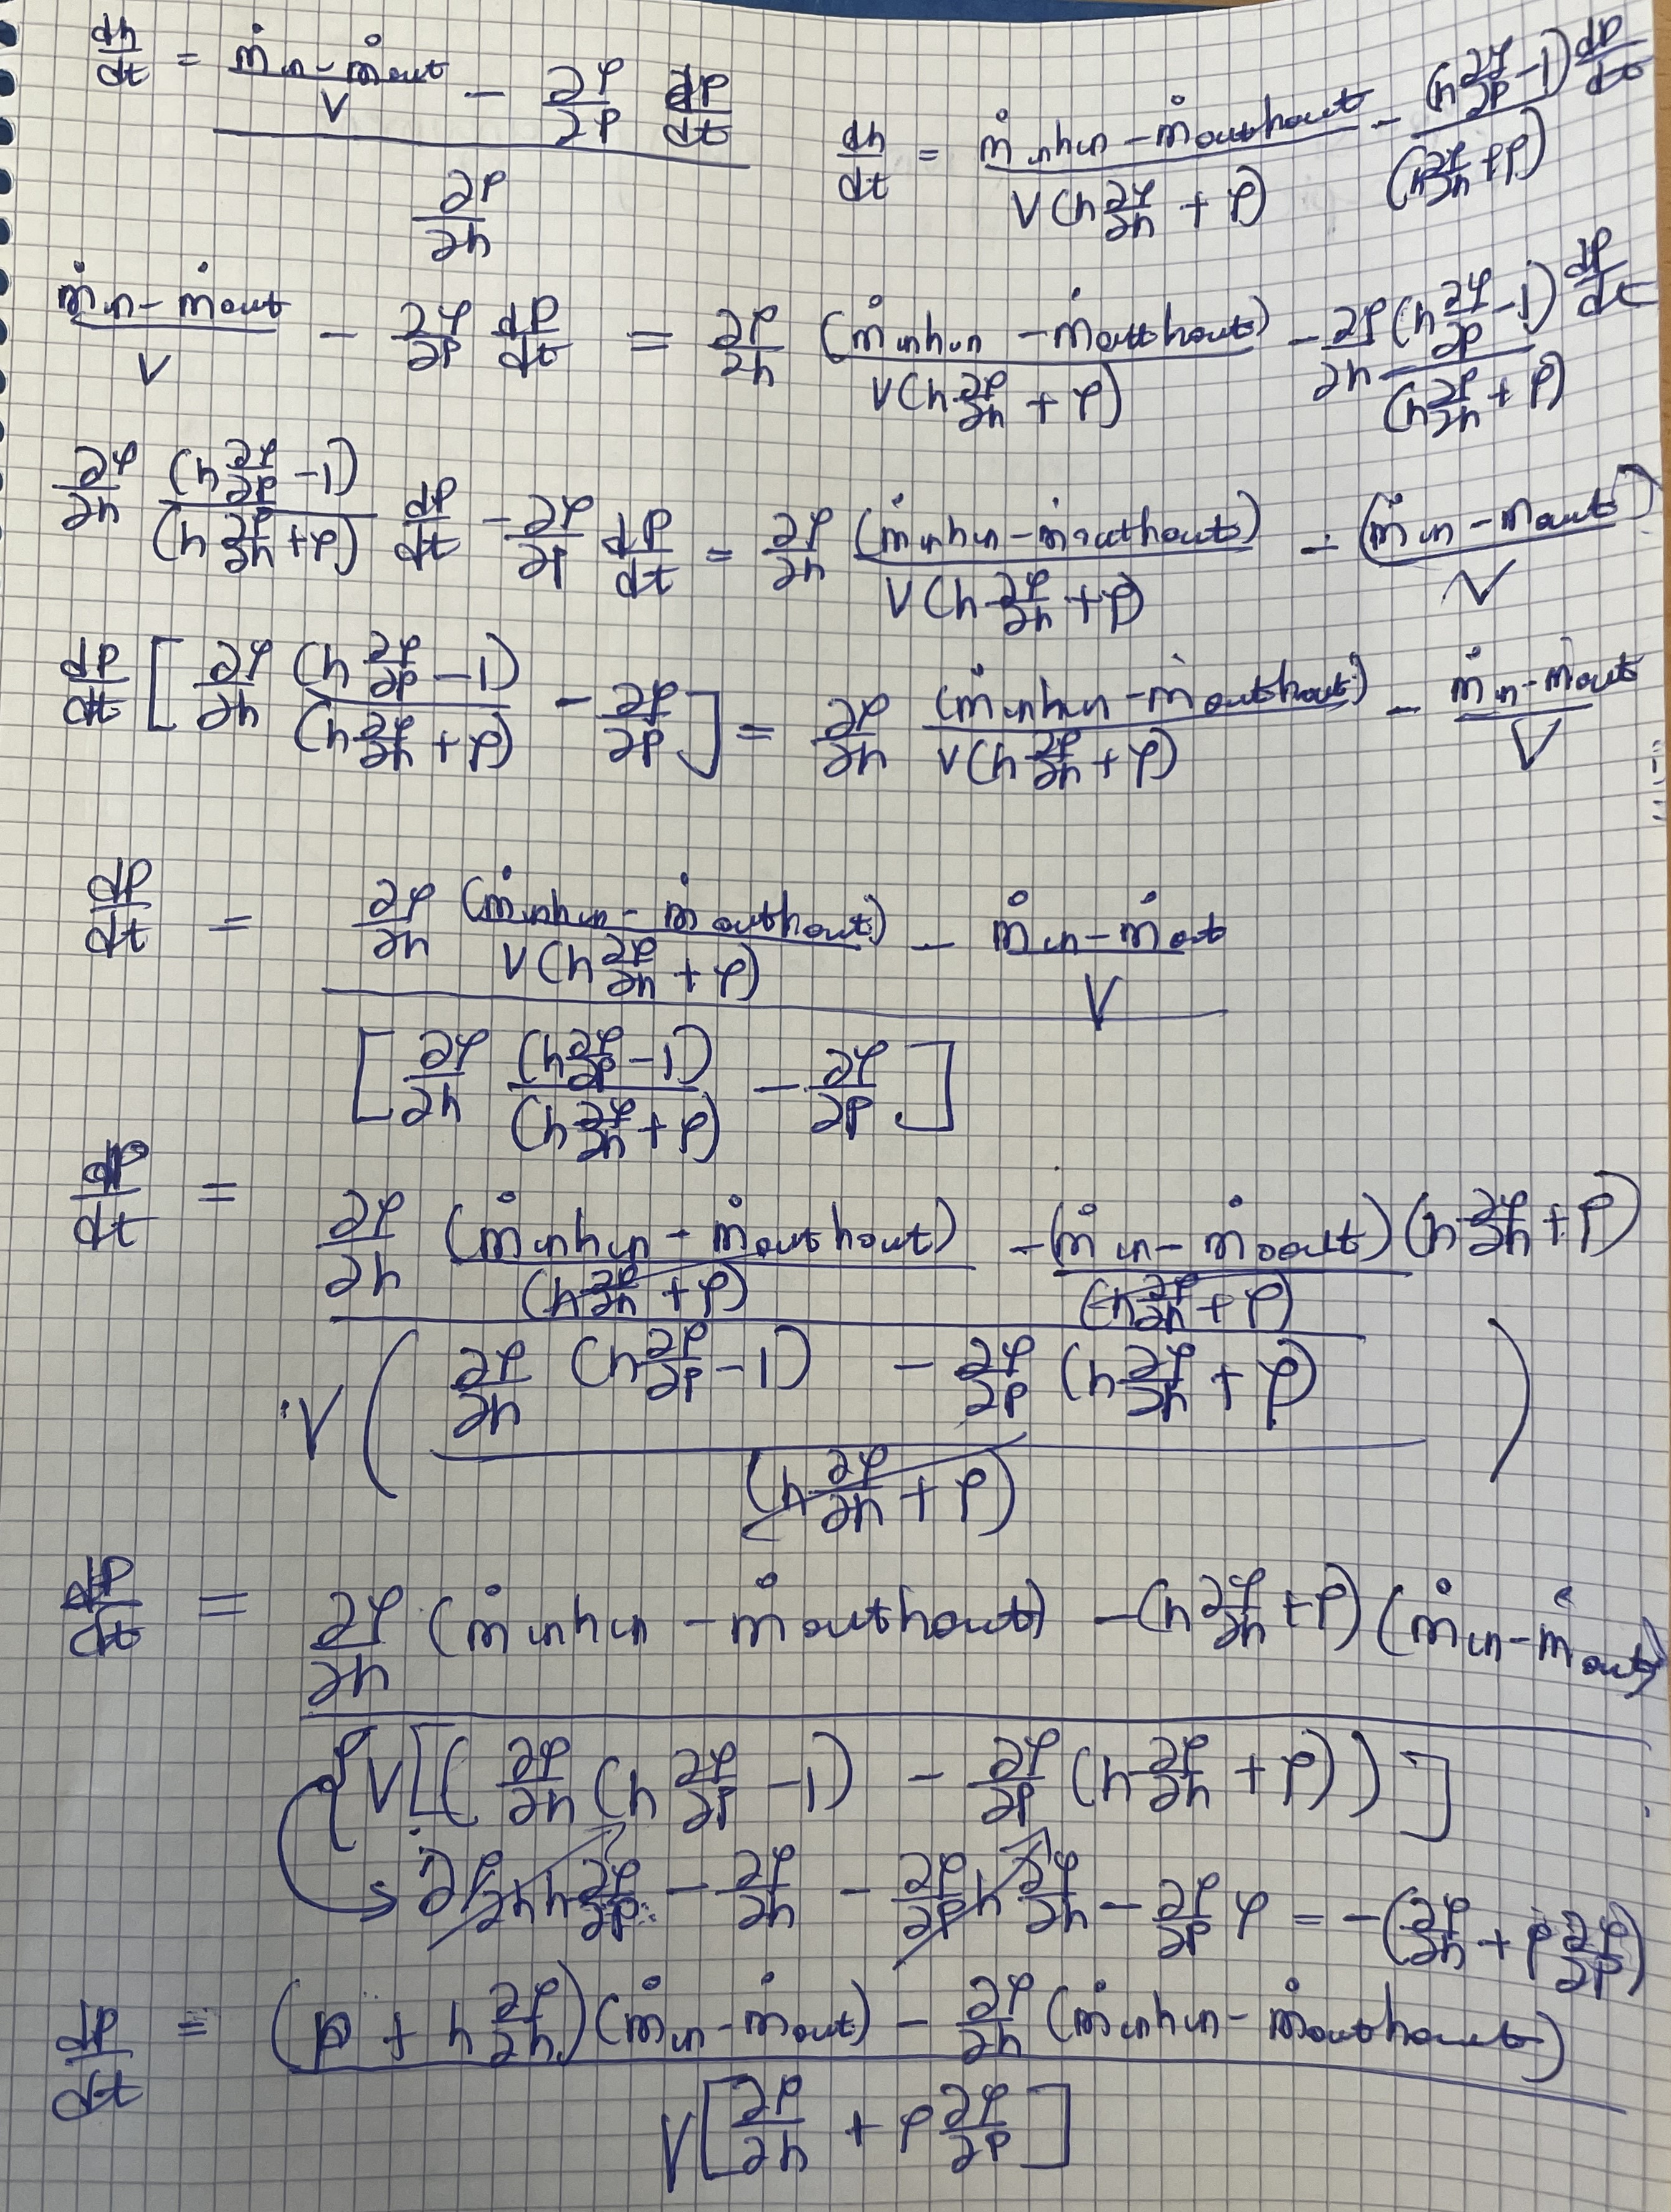 dh/dt = ((ṁin - ṁout)/V - ∂ρ/∂P dP/dt) / (∂ρ/∂h)
dh/dt = (ṁinhin - ṁouthout)/(V(h ∂ρ/∂h + ρ)) - (h ∂ρ/∂P - 1)/(h ∂ρ/∂h + ρ) dP/dt
(ṁin - ṁout)/V - ∂ρ/∂P dP/dt = ∂ρ/∂h (ṁinhin - ṁouthout)/(V(h ∂ρ/∂h + ρ)) - ∂ρ/∂h (h ∂ρ/∂P - 1)/(h ∂ρ/∂h + ρ) dP/dt
∂ρ/∂h (h ∂ρ/∂P - 1)/(h ∂ρ/∂h + ρ) dP/dt - ∂ρ/∂P dP/dt = ∂ρ/∂h (ṁinhin - ṁouthout)/(V(h ∂ρ/∂h + ρ)) - (ṁin - ṁout)/V
dP/dt [∂ρ/∂h (h ∂ρ/∂P - 1)/(h ∂ρ/∂h + ρ) - ∂ρ/∂P] = ∂ρ/∂h (ṁinhin - ṁouthout)/(V(h ∂ρ/∂h + ρ)) - (ṁin - ṁout)/V
dP/dt = (∂ρ/∂h (ṁinhin - ṁouthout)/(V(h ∂ρ/∂h + ρ)) - (ṁin - ṁout)/V) / [∂ρ/∂h (h ∂ρ/∂P - 1)/(h ∂ρ/∂h + ρ) - ∂ρ/∂P]
dP/dt = (∂ρ/∂h (ṁinhin - ṁouthout)/(h ∂ρ/∂h + ρ) - (ṁin - ṁout)(h ∂ρ/∂h + ρ)/(h ∂ρ/∂h + ρ)) / V((∂ρ/∂h (h ∂ρ/∂P - 1) - ∂ρ/∂P (h ∂ρ/∂h + ρ))/(h ∂ρ/∂h + ρ))
dP/dt = (∂ρ/∂h (ṁinhin - ṁouthout) - (h ∂ρ/∂h + ρ)(ṁin - ṁout)) / {V[(∂ρ/∂h (h ∂ρ/∂P - 1) - ∂ρ/∂P (h ∂ρ/∂h + ρ))]
→ ∂ρ/∂h h ∂ρ/∂P - ∂ρ/∂h - ∂ρ/∂P h ∂ρ/∂h - ∂ρ/∂P ρ = -(∂ρ/∂h + ρ ∂ρ/∂P)
dP/dt = ((ρ + h ∂ρ/∂h)(ṁin - ṁout) - ∂ρ/∂h (ṁinhin - ṁouthout)) / V[∂ρ/∂h + ρ ∂ρ/∂P]